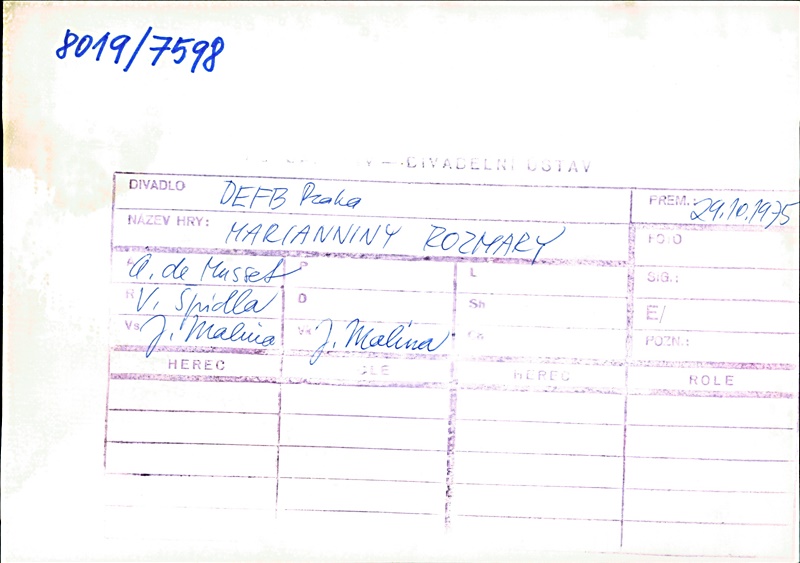 8019/7598
DIVADELNÍ ÚSTAV
DIVADLO DEFB Praha PREM.: 29.10.1975
NÁZEV HRY: MARIANNINY ROZMARY FOTO
A. de Musset P L SIG.:
R V. Špidla D Sh E/
Vs J. Malina Vk J. Malina POZN.:
HEREC HEREC ROLE